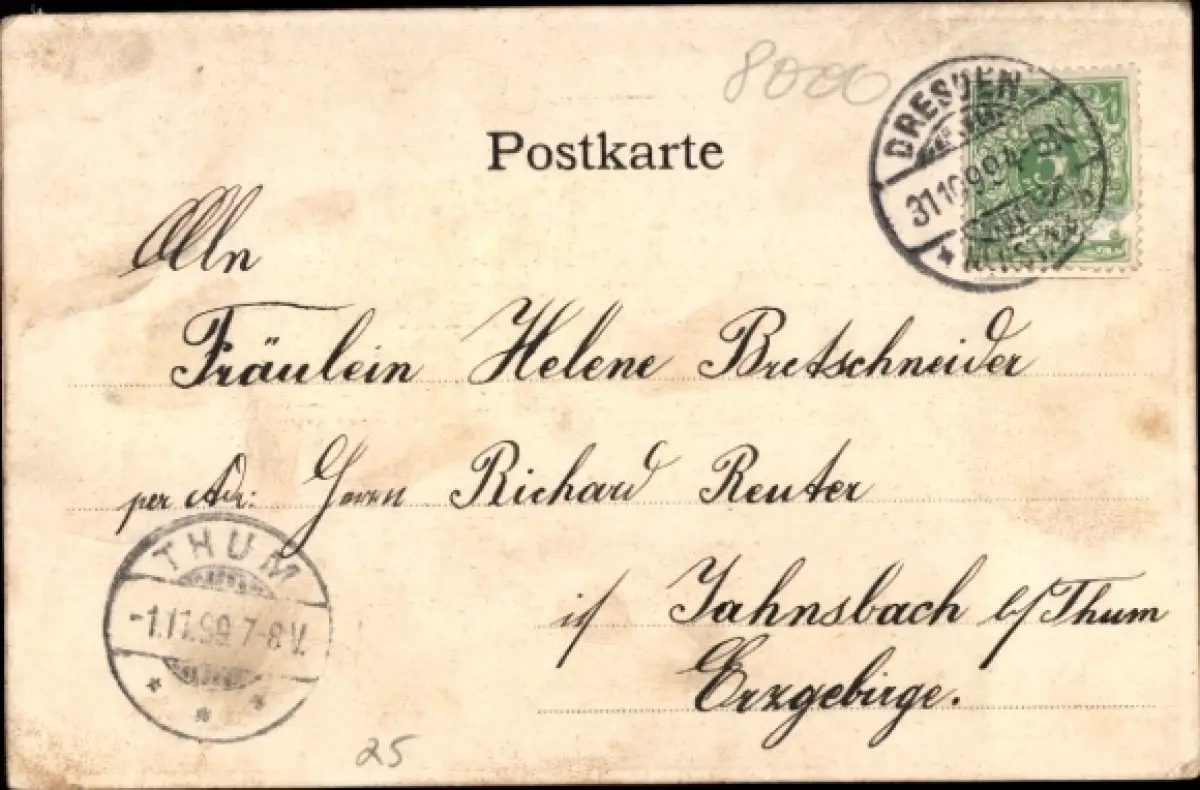 8000
Postkarte
DRESDEN
31 10 99 4-5N
An
Fräulein Helene Bretschneider
per Adr: Herrn Richard Reuter
THUM
-1.11.99 7-8 V.
i/ Jahnsbach b/Thum
Erzgebirge.
25